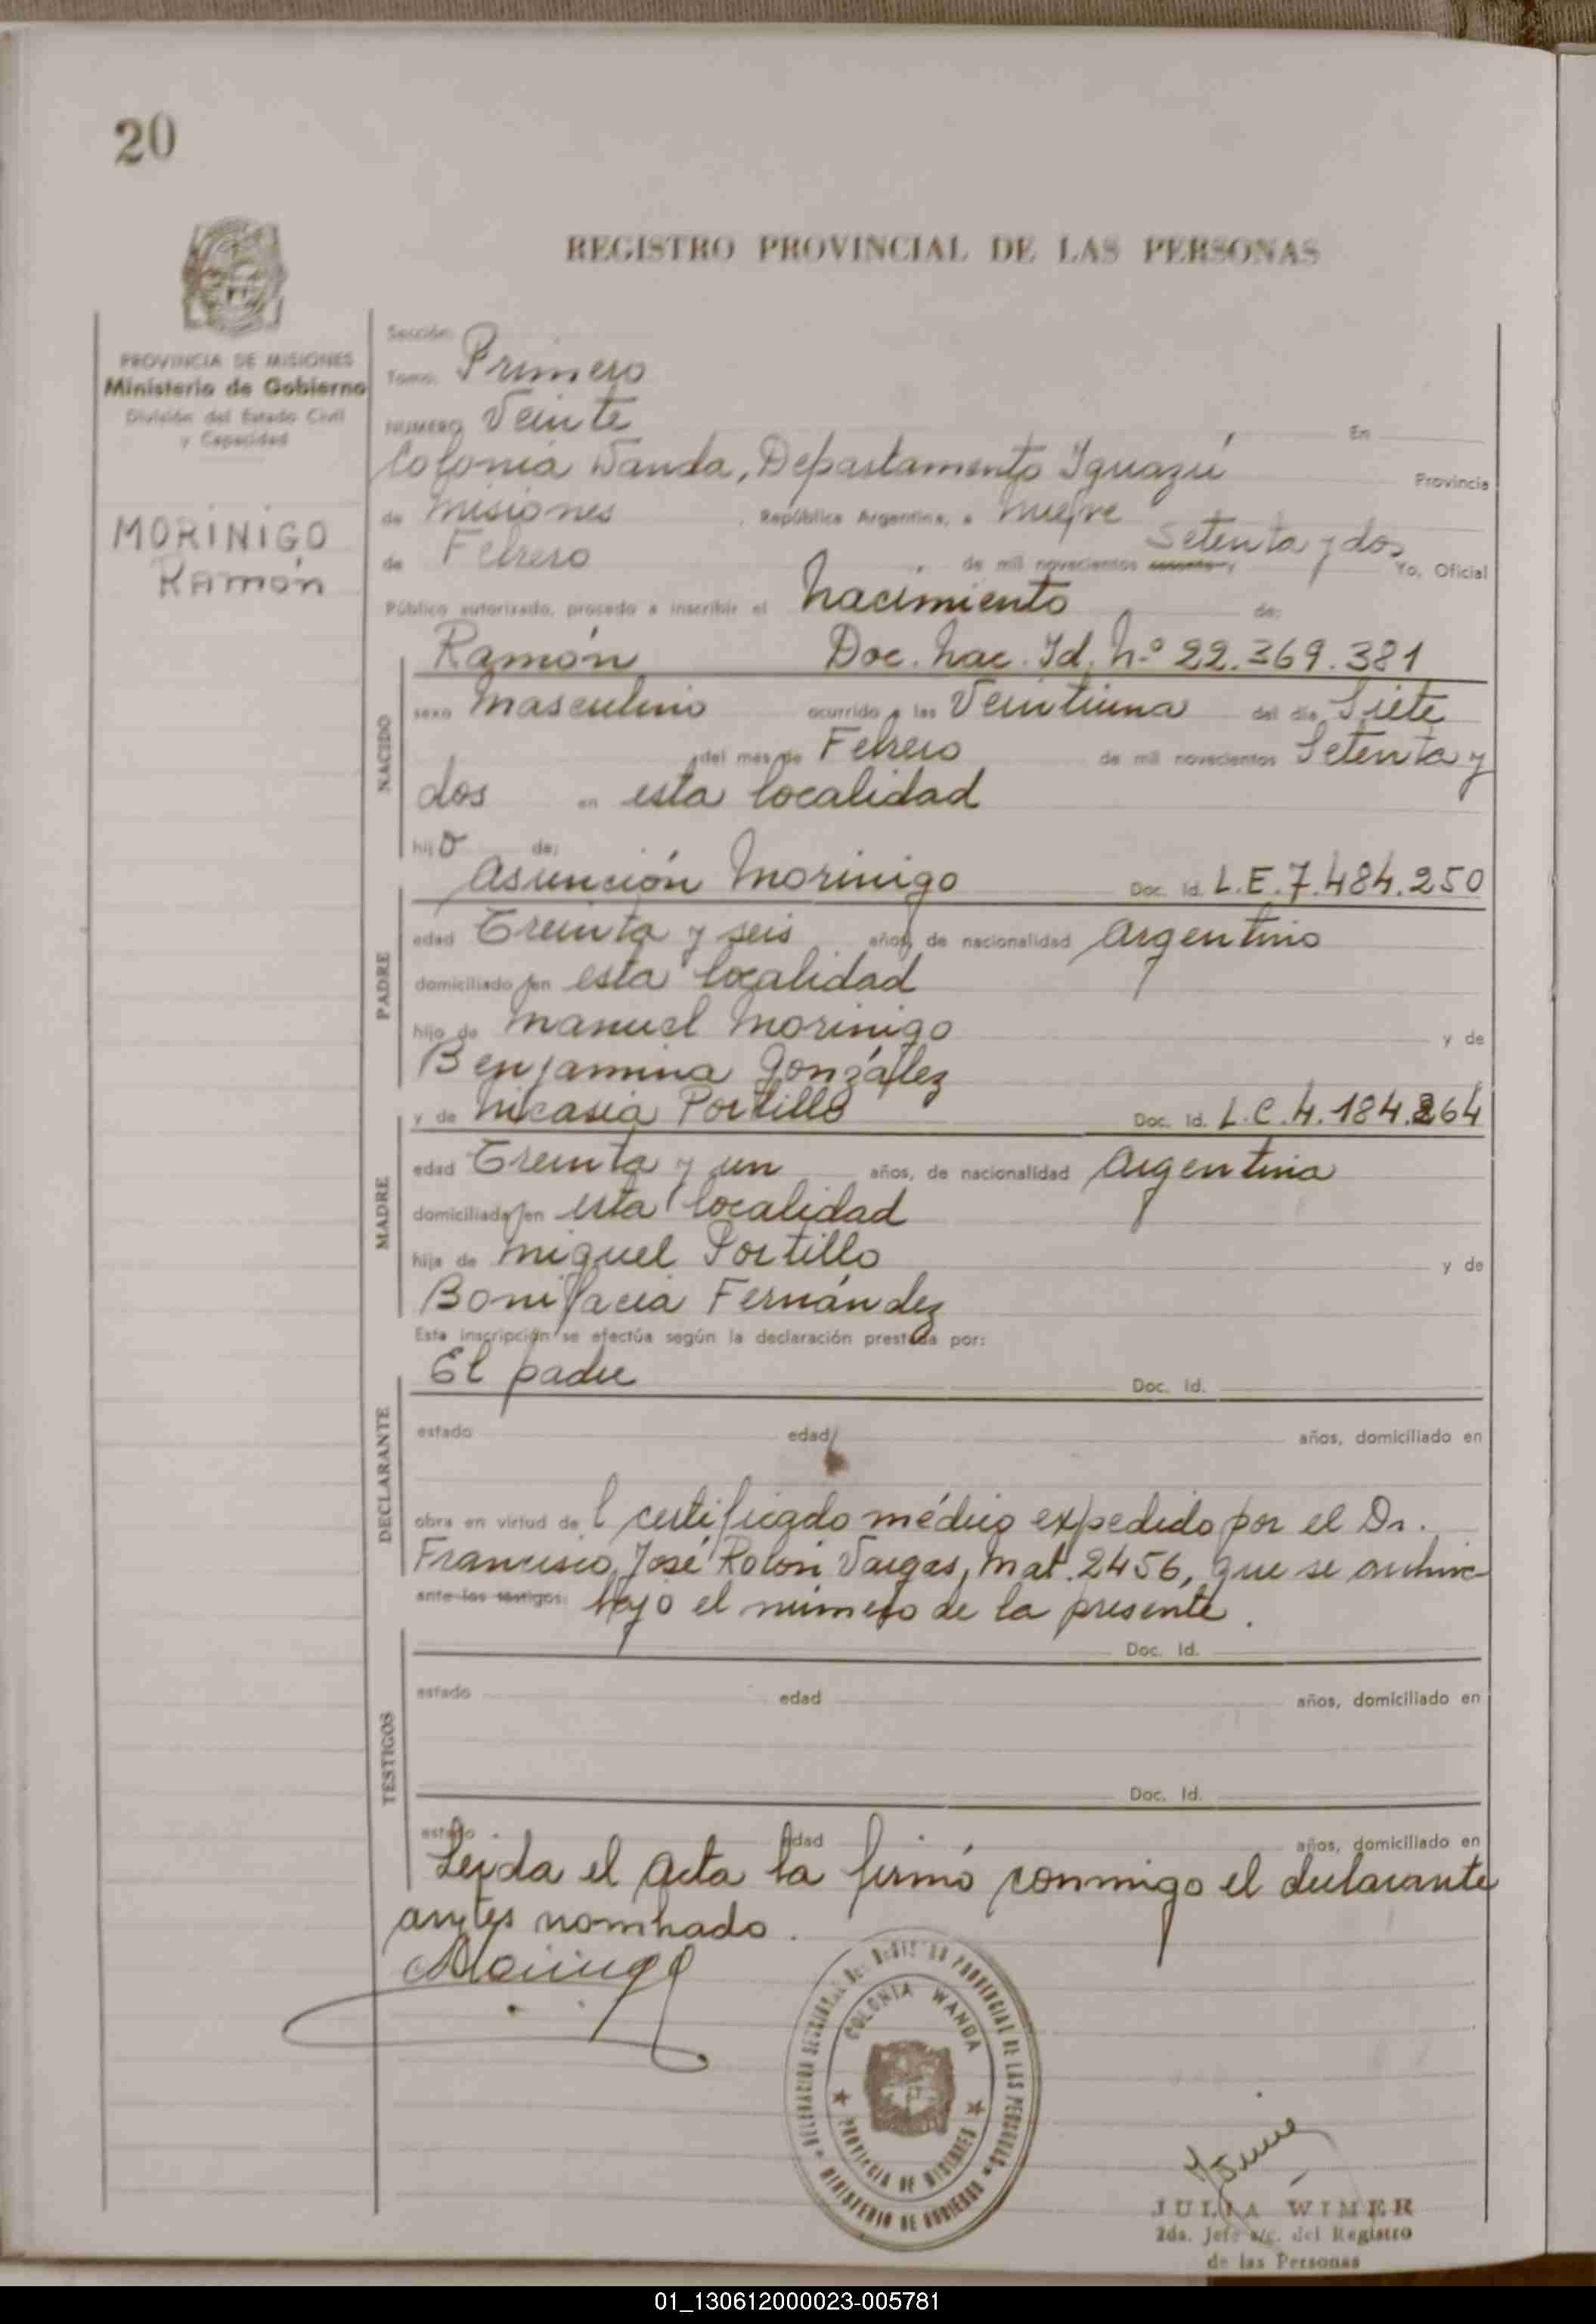 20
REGISTRO PROVINCIAL DE LAS PERSONAS
PROVINCIA DE MISIONES
Ministerio de Gobierno
División del Estado Civil
y Capacidad
MORINIGO
Ramón
Sección:
Tomo: Primero
NUMERO Veinte En
Colonia Wanda, Departamento Iguazú Provincia
de Misiones, República Argentina, a nueve
de Febrero de mil novecientos sesenta y Setenta y dos Yo, Oficial
Público autorizado, procedo a inscribir el nacimiento de:
NACIDO
Ramón Doc. Nac. Id. N.º 22.369.381
sexo masculino ocurrido a las Veintiuna del día Siete
del mes de Febrero de mil novecientos Setenta y
dos en esta localidad
hijo de:
PADRE
Asunción Morinigo Doc. Id. L.E. 7.484.250
edad Treinta y seis años, de nacionalidad Argentino
domiciliado en esta localidad
hijo de Manuel Morinigo y de
Benjamina González
MADRE
y de Nicasia Portillo Doc. Id. L.C. 4.184.264
edad Treinta y un años, de nacionalidad Argentina
domiciliada en esta localidad
hija de Miguel Portillo y de
Bonifacia Fernández
Esta inscripción se efectúa según la declaración prestada por:
DECLARANTE
El padre Doc. Id.
estado edad años, domiciliado en
obra en virtud del certificado médico expedido por el Dr.
Francisco José Rolón Vargas, Mat. 2456, que se archiva
ante los testigos: bajo el número de la presente.
TESTIGOS
Doc. Id.
estado edad años, domiciliado en
Doc. Id.
estado edad años, domiciliado en
Leída el acta la firmó conmigo el declarante
antes nombrado.
Morinigo
DELEGACION SECCIONAL DEL REGISTRO PROVINCIAL DE LAS PERSONAS
COLONIA WANDA
PROVINCIA DE MISIONES
MINISTERIO DE GOBIERNO
JULIA WIMER
2da. Jefe a/c. del Registro
de las Personas
01_130612000023-005781